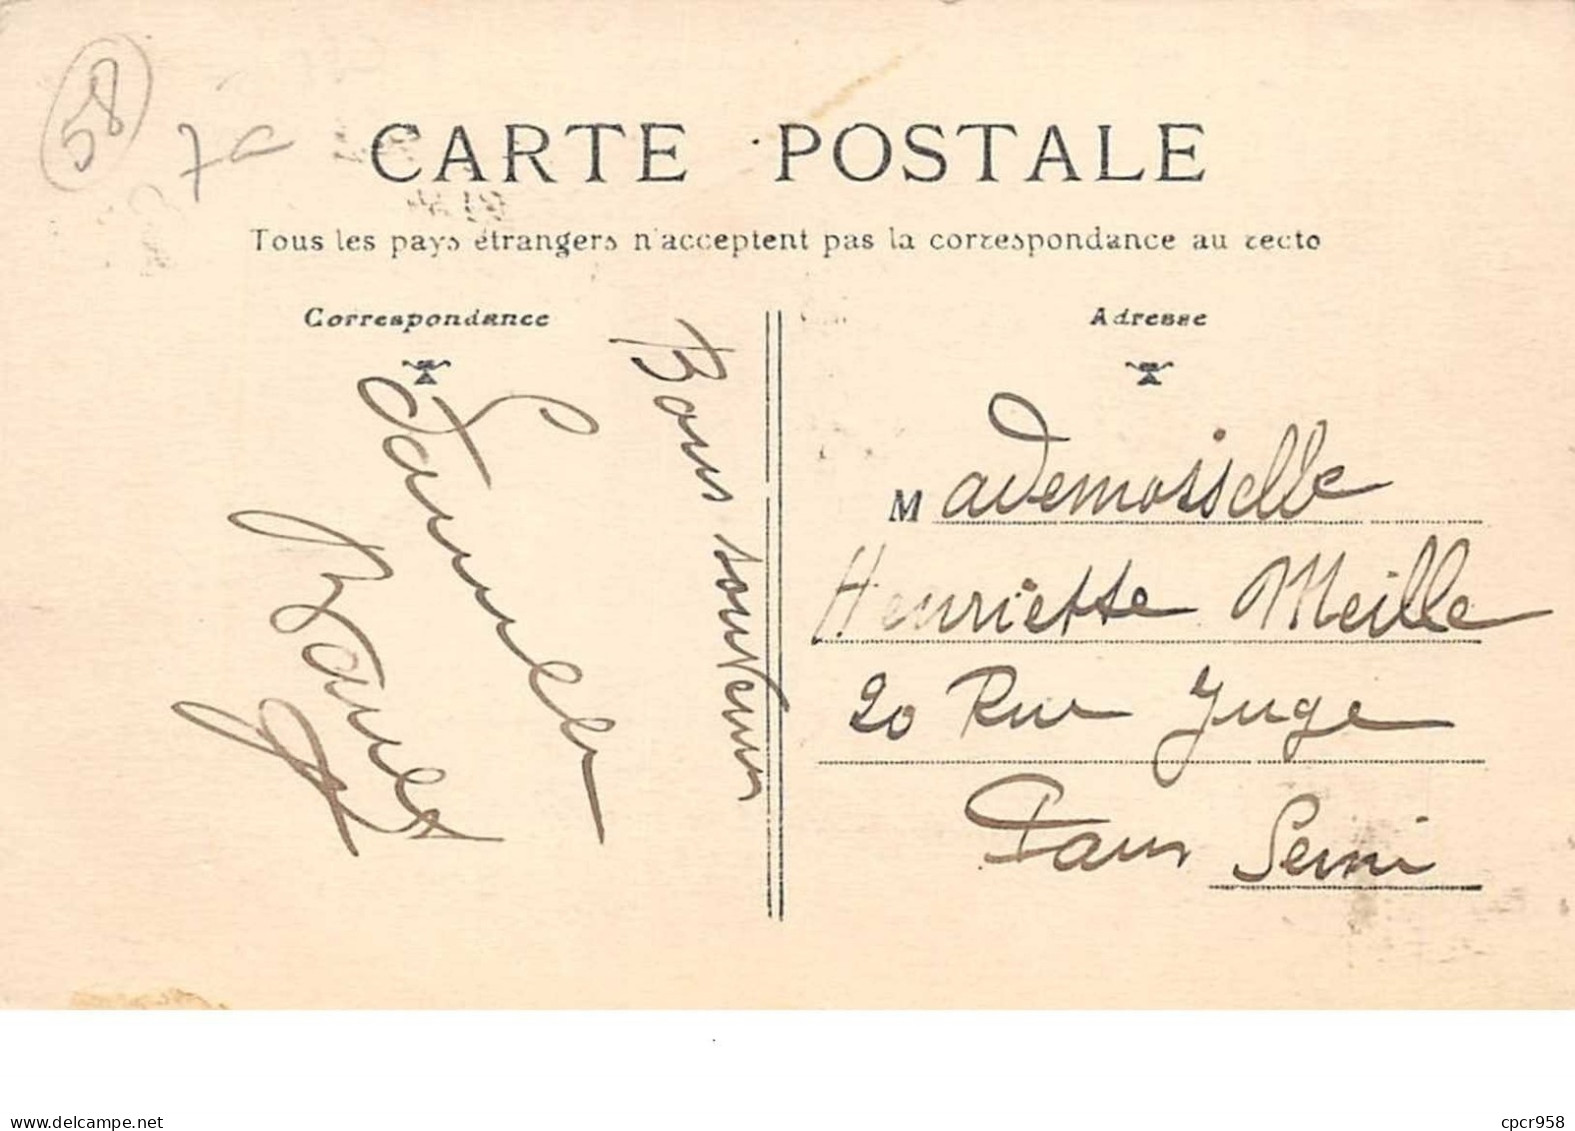 58
7c
CARTE POSTALE
Tous les pays étrangers n'acceptent pas la correspondance au recto
Correspondance
Adresse
Bons souvenirs
Mademoiselle
Henriette Meille
20 Rue Juge
Paris Seine
www.delcampe.net
cpcr958